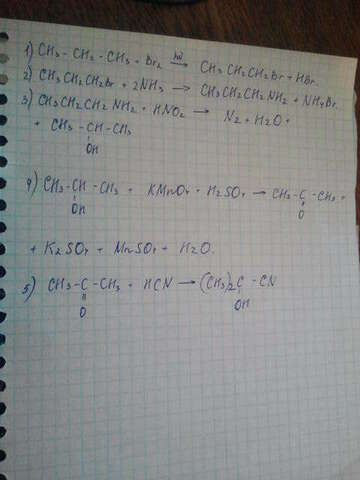 1) CH3 - CH2 - CH3 + Br2 hν→ CH3CH2CH2Br + HBr.
2) CH3CH2CH2Br + 2NH3 → CH3CH2CH2NH2 + NH4Br.
3) CH3CH2CH2NH2 + HNO2 → N2 + H2O +
+ CH3 - CH - CH3
OH
4) CH3 - CH - CH3 + KMnO4 + H2SO4 → CH3 - C - CH3 +
OH O
+ K2SO4 + MnSO4 + H2O.
5) CH3 - C - CH3 + HCN → (CH3)2C - CN
O OH